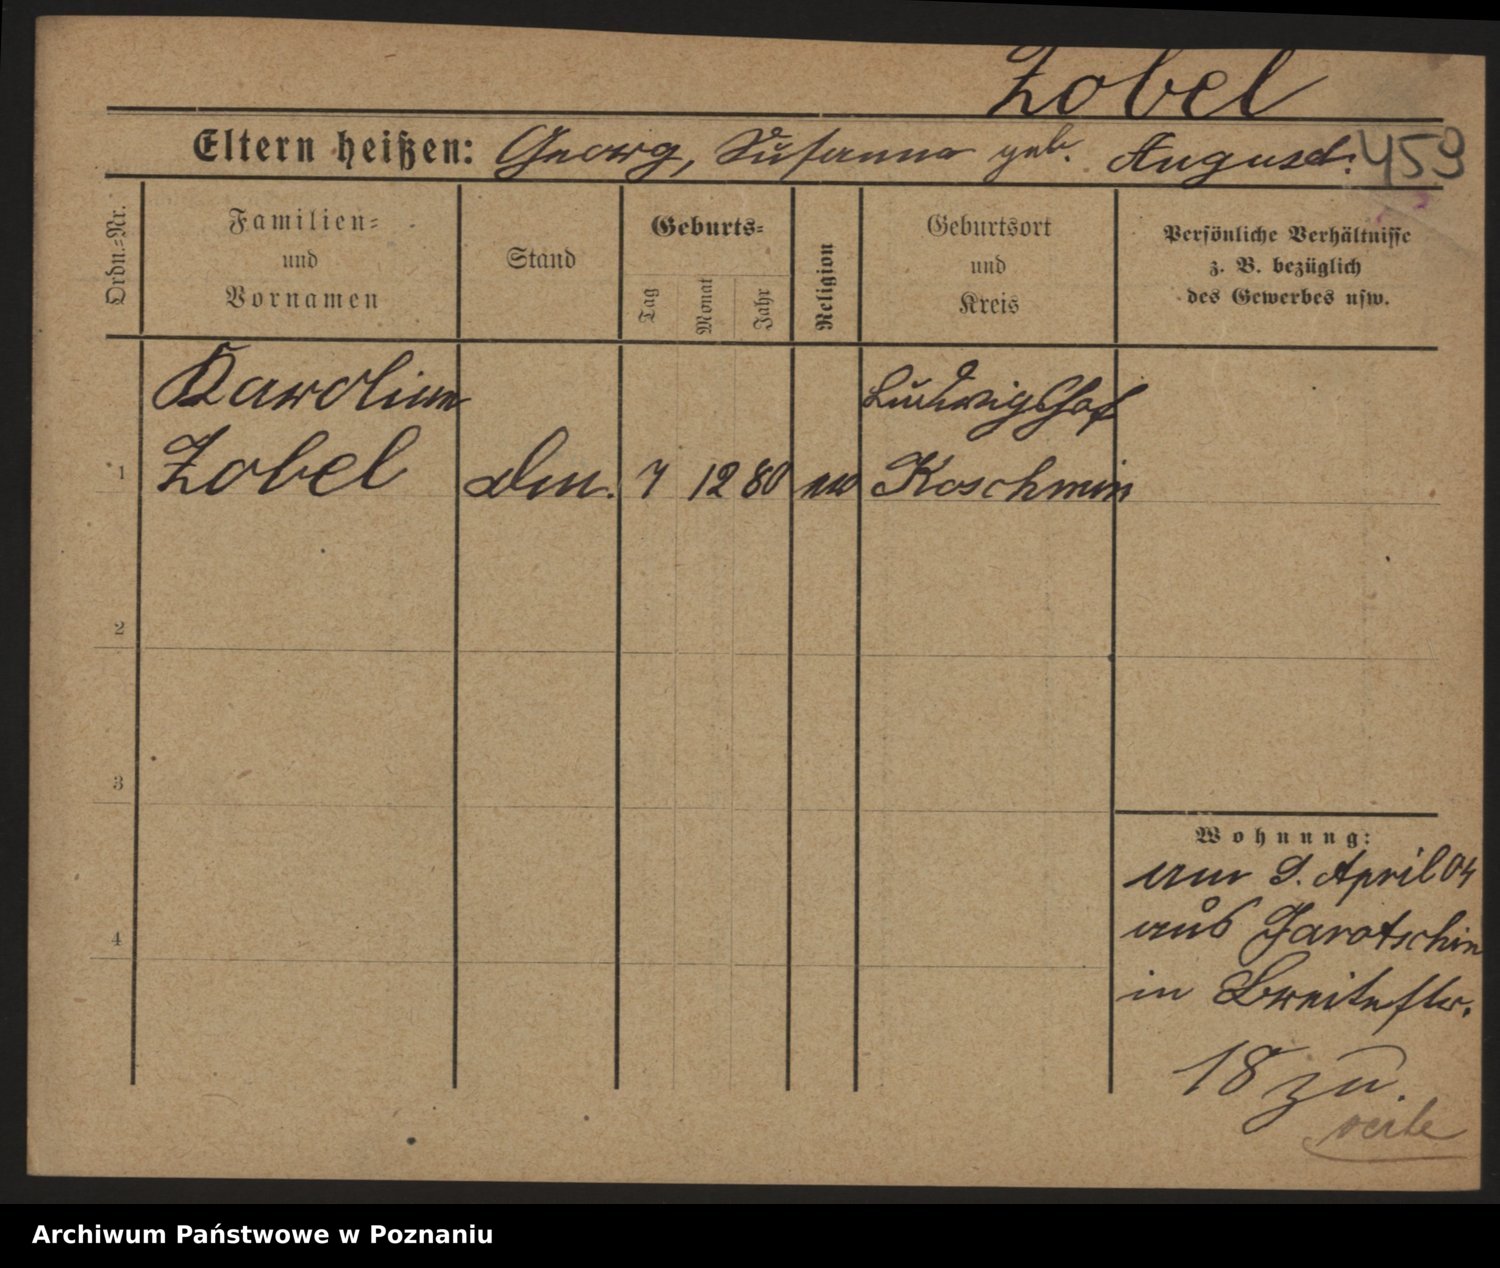 Zobel
Eltern heißen: Georg, Susanna geb. August. 459
Ordn.=Nr.
Familien=
und
Vornamen
Stand
Geburts=
Tag
Monat
Jahr
Religion
Geburtsort
und
Kreis
Persönliche Verhältnisse
z. B. bezüglich
des Gewerbes usw.
Karoline
Ludwigshof
1 Zobel 7 12 80 Koschmin
2
3
4
Wohnung:
am 9. April 04
aus Jarotschin
in Breitestr.
18 zu.